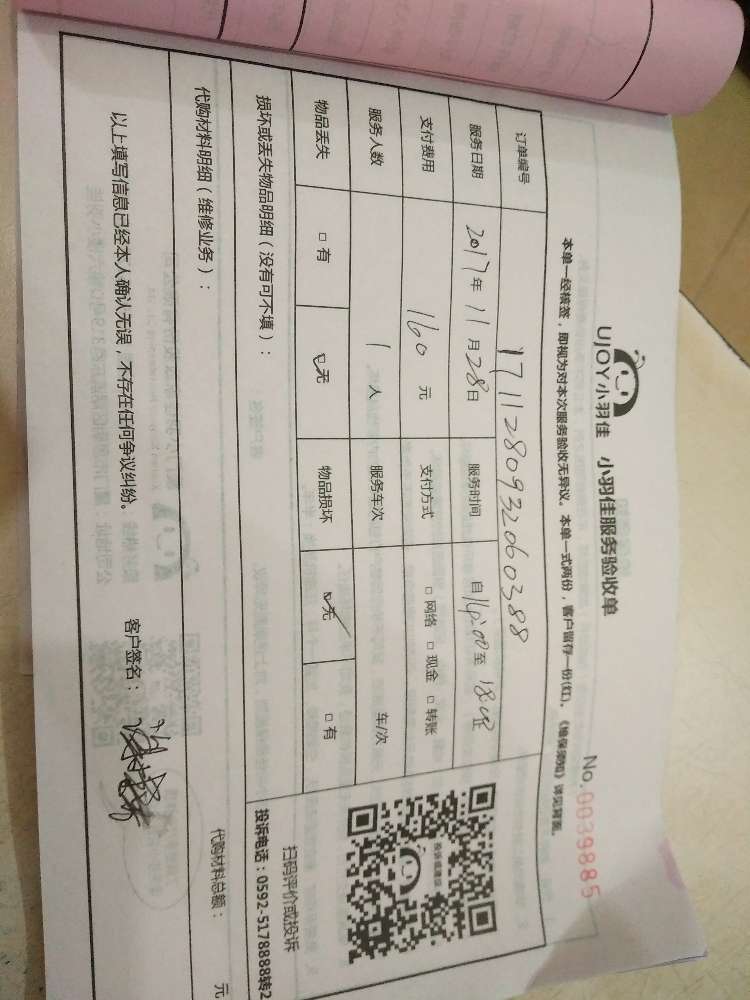 UJOY小羽佳 小羽佳服务验收单
No. 0039885
本单一经核签，即视为对本次服务验收无异议。本单一式两份，客户留存一份(红)。《维保须知》详见背面。
订单编号 1711280932060388
服务日期 2017年 11月 28日 服务时间 自 14:00至 18:00
支付费用 160 元 支付方式 □ 网络 □ 现金 □ 转账
服务人数 1 人 服务车次 车/次
物品丢失 □ 有 □ 无 物品损坏 □ 无 □ 有
投诉或建议
扫码评价或投诉
投诉电话：0592-5178888转2
损坏或丢失物品明细（没有可不填）：
代购材料明细（维修业务）：
代购材料总额： 元
以上填写信息已经本人确认无误，不存在任何争议纠纷。 客户签名：